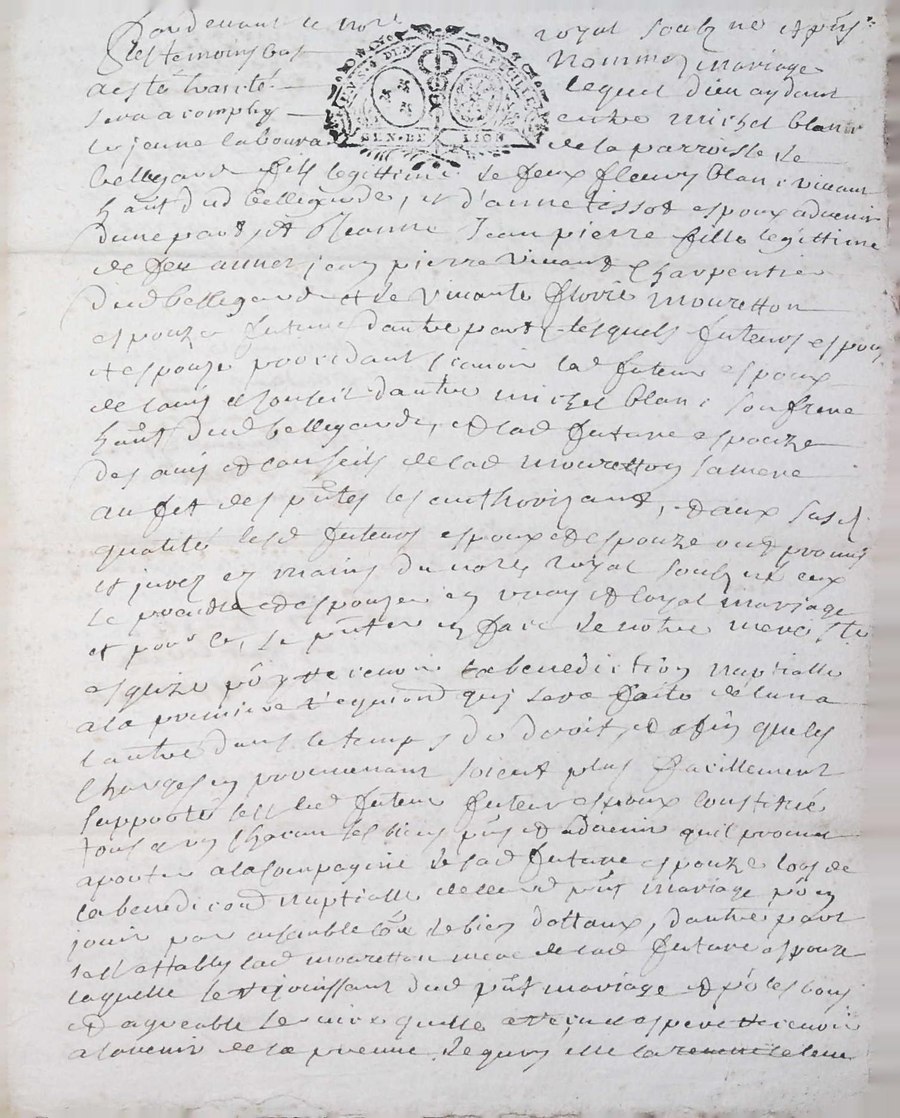 Pardevant le nore royal soubzne et pnts
les temoins bas nommez mariage
a esté traicté lequel dieu aydant
sera acomply entre michel blanc
le jeune laboura de la parroisse de
bellegarde fils legittime de feux fleury blanc vivant
hant dud bellegarde, et d'anne tissot espoux advenir
dune part, et Jeanne Jean pierre fille legittime
de feu jean pierre vivant Charpentier
dud bellegarde et de vivante florie mouretton
espouze future dautre part, lesquels futeurs espoux
et espouze procedant scavoir led futeur espoux
de lavis et conseil dautre michel blanc son frere
hant dud bellegarde, et lad future espouze
des avis et conseils de lad mouretton sa mere
au fet des pntes les authorizant, et aux susd
qualités lesd futeurs espoux et espouze ont promis
et jurez es mains du nore royal soubzne eux
se prendre et espouzer en vray et loyal mariage
et pour ce, se pnter en face de notre mere ste
esglize pour y recevoir la benediction nuptialle
a la premiere requiond quy sera faite de luna
lautre dans le temps du droit, et afin que les
charges en provenant soient plus facillement
supportes led futeur futeur espoux constitué
tous et un chacun ses biens pnts et advenir quil promet
aporter a la compagnie de lad future espouze lors de
la benedicond nuptialle dud pnt mariage pour en
jouir par ensemble de biens dottaux, dautre part
sest establye lad mouretton mere de lad future espouze
laquelle se rejouissant dud pnt mariage et pour les bons
et agreable services quelle a receu et espere recevoir
a ladvenir de la preuve dequoy elle la
EVS. D DEN LA FEUILLE
SEN. DE LION